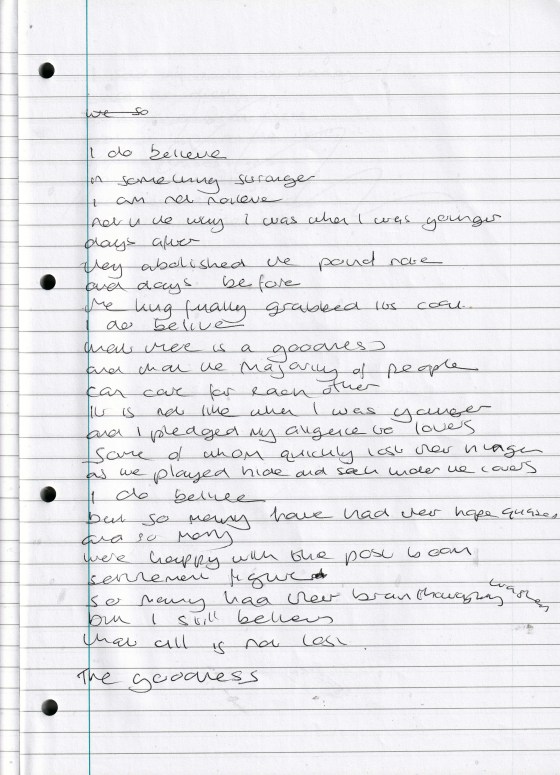 we so
I do believe
in something stranger
I am not naieve
not in the way I was when I was younger
days after
they abolished the pound note
and days before
the king finally grabbed his coat..
I do belive
that there is a goodness
and that the majority of people
can care for each other
it is not like when I was younger
and I pledged my to lovers
some of whom quickly lost their hunger
as we played hide and seek under the covers
I do belivee
but so many have had their hope quashed
and so many
were happy with the post
settlement
so many had their brain washed
but I still believe
that all is not lost.
The goodness